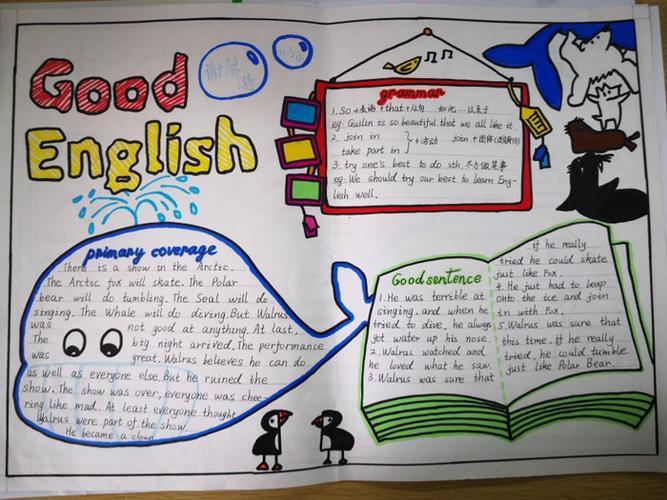 Good
English
grammar
1. So+表语+that+从句 如此...以至于
eg. Guilin is so beautiful that we all like it.
2. join in
take part in } +活动 join+团体
3. try one's best to do sth. 尽力做某事
eg. We should try our best to learn Eng-
lish well.
primary coverage
There is a show in the Arctic.
The Arctic fox will skate. The Polar
bear will do tumbling. The Seal will do
singing. The Whale will do diving. But Walrus
was not good at anything. At last.
The big night arrived. The performance
was great. Walrus believes he can do
as well as everyone else. But he ruined the
show. The show was over, everyone was chee-
ring like mad. At least everyone thought
Walrus were part of the show.
He became a clown.
Good sentence
1. He was terrible at
singing. and when he
tried to dive, he always
got water up his nose.
2. Walrus watched and
he loved what he saw.
3. Walrus was sure that
if he really
tried he could skate
just like Fox.
4. He just had to leap
onto the ice and join
in with Fox.
5. Walrus was sure that
this time. if he really
tried, he could tumble
just like Polar Bear.